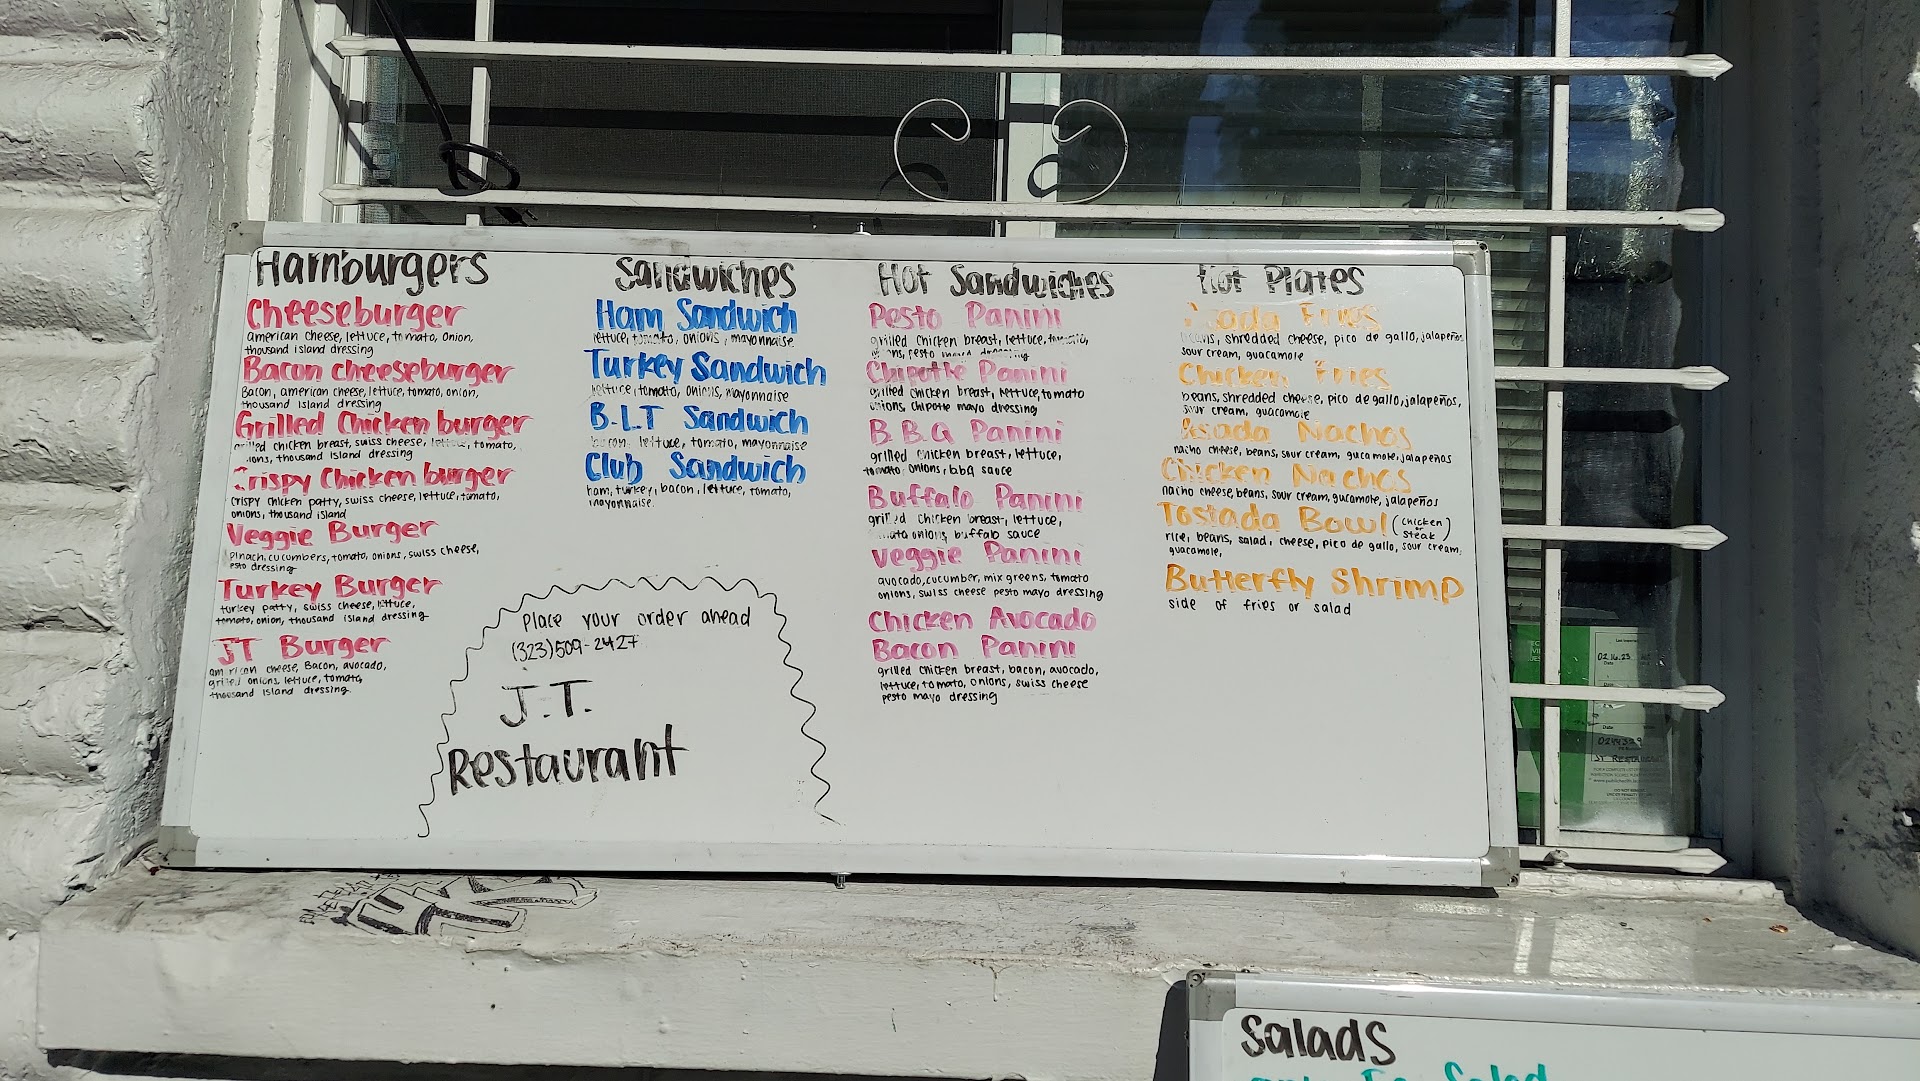 Hamburgers
Cheeseburger
american cheese, lettuce, tomato, onion,
thousand island dressing
Bacon cheeseburger
Bacon, american cheese, lettuce, tomato, onion,
thousand island dressing
Grilled Chicken burger
grilled chicken breast, swiss cheese, lettuce, tomato,
onions, thousand island dressing
Crispy Chicken burger
crispy chicken patty, swiss cheese, lettuce, tomato,
onions, thousand island
Veggie Burger
pinach, cucumbers, tomato, onions, swiss cheese,
esto dressing
Turkey Burger
turkey patty, swiss cheese, lettuce,
tomato, onion, thousand island dressing
JT Burger
american cheese, Bacon, avocado,
grilled onions, lettuce, tomato,
thousand island dressing
Sandwiches
Ham Sandwich
lettuce, tomato, onions, mayonnaise
Turkey Sandwich
lettuce, tomato, onions, mayonnaise
B.L.T Sandwich
bacon, lettuce, tomato, mayonnaise
Club Sandwich
ham, turkey, bacon, lettuce, tomato,
mayonnaise.
Place your order ahead
(323)509-2427
J.T.
Restaurant
Hot Sandwiches
Pesto Panini
grilled chicken breast, lettuce, tomato,
onions, pesto mayo dressing
Chipotle Panini
grilled chicken breast, lettuce, tomato
onions, chipotle mayo dressing
B.B.Q Panini
grilled chicken breast, lettuce,
tomato, onions, b.b.q sauce
Buffalo Panini
grilled chicken breast, lettuce,
tomato onions, buffalo sauce
Veggie Panini
avocado, cucumber, mix greens, tomato
onions, swiss cheese pesto mayo dressing
Chicken Avocado
Bacon Panini
grilled chicken breast, bacon, avocado,
lettuce, tomato, onions, swiss cheese
pesto mayo dressing
Hot Plates
Fries
beans, shredded cheese, pico de gallo, jalapeños
sour cream, guacamole
Chicken Fries
beans, shredded cheese, pico de gallo, jalapeños,
sour cream, guacamole
Asada Nachos
nacho cheese, beans, sour cream, gucamole, jalapeños
Chicken Nachos
nacho cheese, beans, sour cream, gucamole, jalapeños
Tostada Bowl (chicken or steak)
rice, beans, salad, cheese, pico de gallo, sour cream,
guacamole,
Butterfly Shrimp
side of fries or salad
02.16.23
0244329
JT Restaurant
Salads